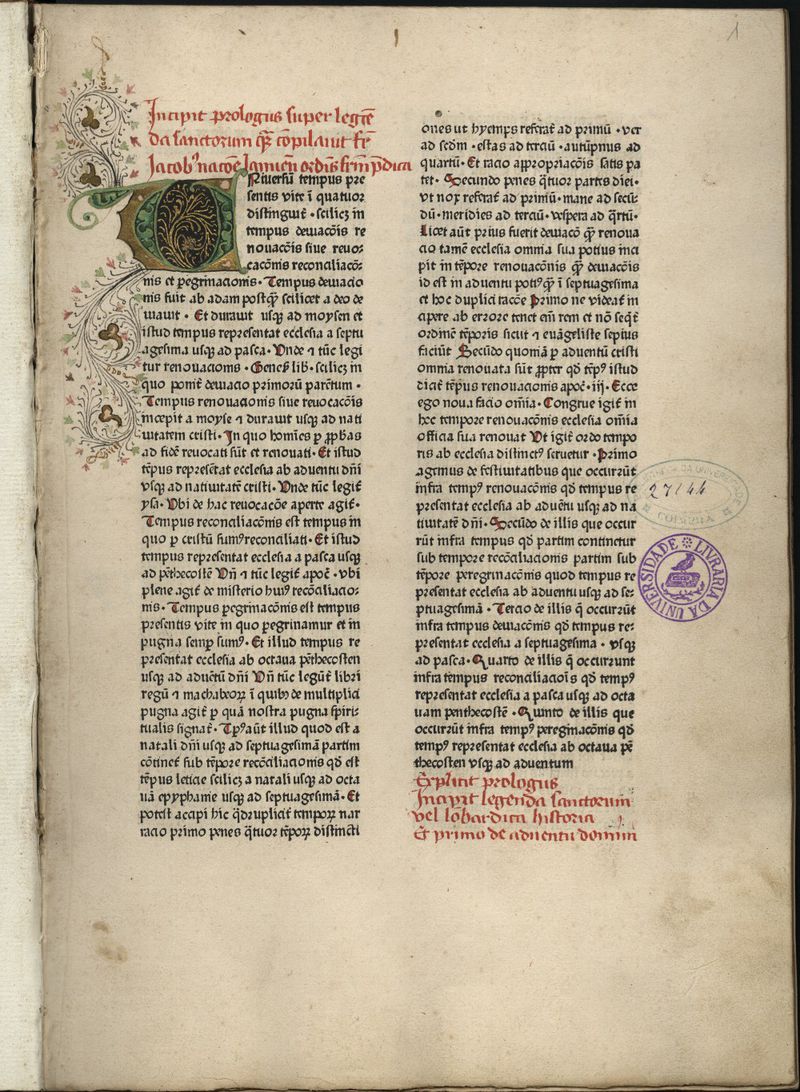 1
Incipit prologus super legēn
da sanctorum q̄ꝫ cōpilauit fr̄
Jacob⁹ nacōe Januen̄ ordīs frm̄ p̄dica
Niuersū tempus pre
sentis vite ī quatuor
distinguit̄ · scilicꝫ in
tempus deuiacōis re
nouacōis siue reuo⸗
cacōnis reconciliacō⸗
nis et peregrinacionis · Tempus deuiacio
nis fuit ab adam postq̄ꝫ scilicet a deo de
uiauit · Et durauit usqꝫ ad moysen et
istud tempus representat ecclesia a septu
agesima usqꝫ ad pasca · Vnde ⁊ tūc legi
tur renouacionis · Genes̄ lib · scilicꝫ in
quo ponit̄ deuiacio primorū parētum ·
Tempus renouacionis siue reuocacōis
incepit a moyse ⁊ durauit usqꝫ ad nati
uitatem cristi · In quo homīes ꝑ ꝓphas
ad fidē reuocati sūt et renouati · Et istud
tēpus represētat ecclesia ab aduentu dn̄i
vsqꝫ ad natiuitatē cristi · Vnde tūc legit̄
ysa · Vbi de hac reuocacōe aperte agit̄ ·
Tempus reconciliacōis est tempus in
quo ꝑ cristū sum⁹ reconciliati · Et istud
tempus representat ecclesia a pasca usqꝫ
ad pēthecostē Vn̄ ⁊ tūc legit̄ apoc̄ · vbi
plene agit̄ de misterio hui⁹ recōciliacio⸗
nis · Tempus pegrinacōnis est tempus
presentis vite in quo peregrinamur et in
pugna semꝑ sum⁹ · Et illud tempus re
presentat ecclesia ab octaua pēthecosten
usqꝫ ad aduētū dn̄i Vn̄ tūc legūt̄ libri
regū ⁊ machabeoꝝ ī quib⁹ de multiplici
pugna agit̄ ꝑ quā nostra pugna sp̄iri⸗
tualis signat̄ · Tp̄⁹ aūt illud quod est a
natali dn̄i usqꝫ ad septuagesimā partim
cōtinet̄ sub tēpore recōciliacionis qd̄ est
tēpus leticie scilicꝫ a natali usqꝫ ad octa
uā epyphanie usqꝫ ad septuagesimā · Et
potest accipi hic q̄druplicit̄ tempoꝝ uar
iacio primo penes q̄tuor tēpoꝝ distincti
ones ut hyemps referat̄ ad primū · ver
ad scd̄m · estas ad terciū · autūpnus ad
quartū · Et racio appropriacōis satis pa
tet · Secundo penes q̄tuor partes diei ·
vt nox referat̄ ad primū · mane ad secū⸗
dū · meridies ad terciū · vespera ad q̄rtū ·
Licet aūt prius fuerit deuiacō q̄ꝫ renoua
cio tamē ecclesia omnia sua potius inci
pit in tēpore renouacōnis q̄ꝫ deuiacōis
id est in aduentu poti⁹ q̄ꝫ ī septuagesima
et hoc duplici racōe Primo ne videat̄ in
cipere ab errore tenet em̄ rem et nō seqt̄
ordinē tēporis sicut ⁊ euāgeliste sepius
faciūt Secūdo quoniā ꝑ aduentū cristi
omnia renouata sūt ꝓpter qd̄ tēp⁹ istud
dicit̄ tēpus renouacionis apoc̄ · iij · Ecce
ego noua facio om̄ia · Congrue igit̄ in
hoc tempore renouacōnis ecclesia om̄ia
officia sua renouat Vt igit̄ ordo tempo
ris ab ecclesia distinct⁹ seruetur · Primo
agemus de festiuitatibus que occurrūt
infra temp⁹ renouacōnis qd̄ tempus re
presentat ecclesia ab aduētu usqꝫ ad na
tiuitatē dn̄i · Secūdo de illis que occur
rūt infra tempus qd̄ partim continetur
sub tempore recōciliacionis partim sub
tēpore peregrinacōnis quod tempus re
presentat ecclesia ab aduentu usqꝫ ad se⸗
ptuagesimā · Tercio de illis q̄ occurrūt
infra tempus deuiacōnis qd̄ tempus re⸗
presentat ecclesia a septuagesima · vsqꝫ
ad pasca · Quarto de illis q̄ occurrunt
infra tempus reconciliacioīs qd̄ temp⁹
representat ecclesia a pasca usqꝫ ad octa
uam penthecostē · Quinto de illis que
occurrūt infra temp⁹ peregrinacōnis qd̄
temp⁹ representat ecclesia ab octaua pē
thecosten vsqꝫ ad aduentum
Explicit prologus
Incipit legenda sanctorum
vel lōbardica historia
Et primo de aduentu domini
27144
COIMBRA
LIVRARIA DA UNIVERSIDADE